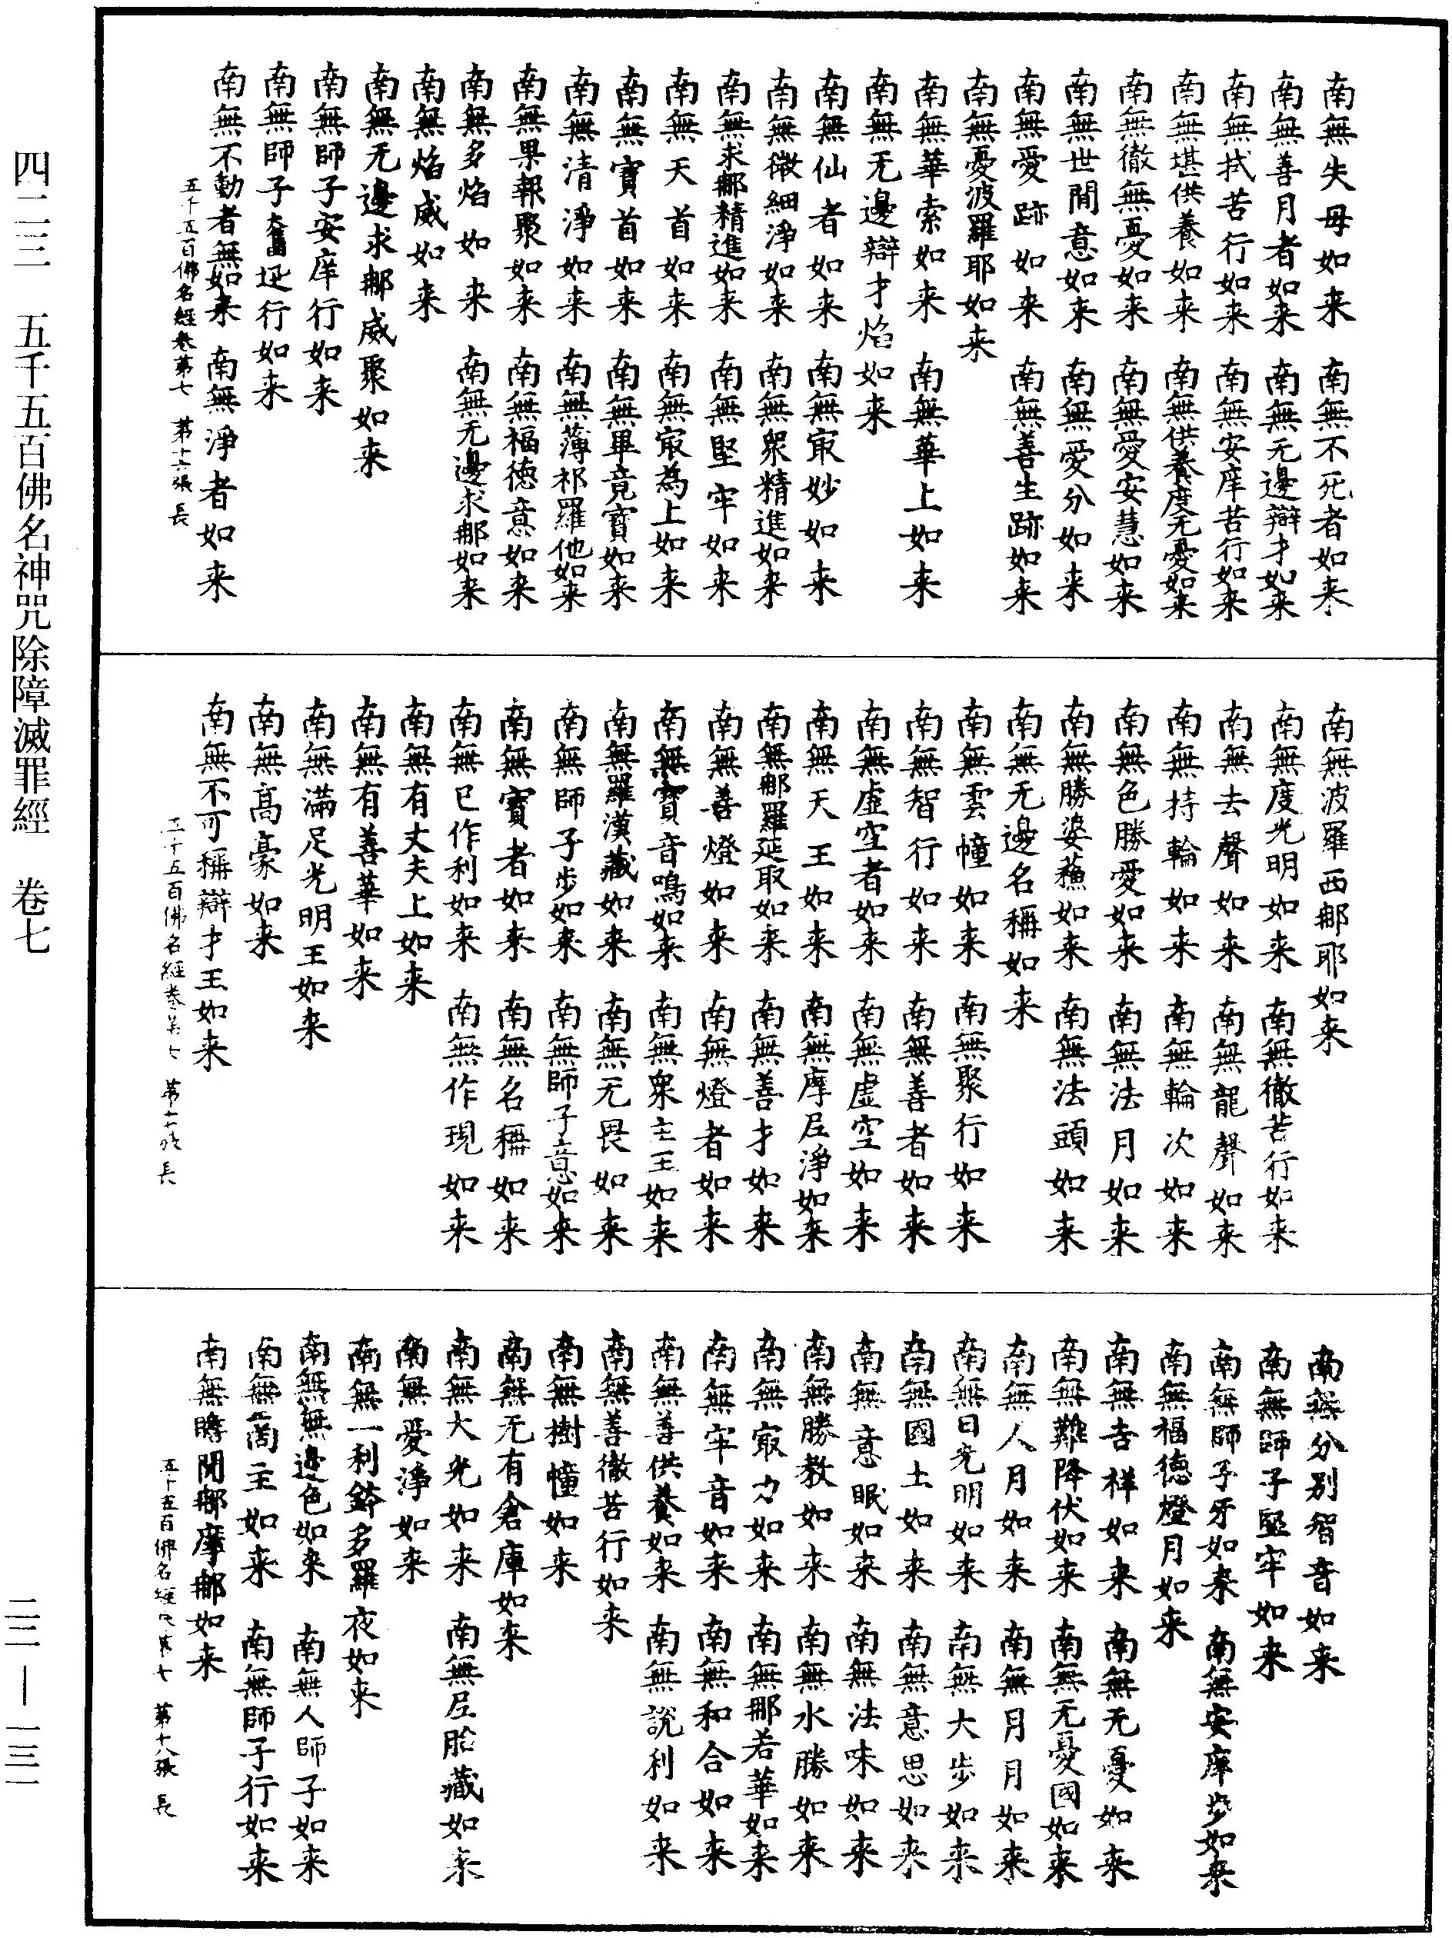 南無失母如来　南無不死者如来
南無善月者如来　南無无邊辯才如来
南無拭苦行如来　南無安庠苦行如来
南無堪供養如来　南無供養度无憂如来
南無徹無憂如来　南無愛安慧如来
南無世間意如来　南無愛分如来
南無愛跡如来　南無善生跡如来
南無憂波羅耶如来
南無華索如来　南無華上如来
南無无邊辯才焰如来
南無仙者如来　南無冣妙如来
南無微細淨如来　南無衆精進如来
南無求郍精進如来　南無堅牢如来
南無天首如来　南無冣為上如来
南無寶首如来　南無畢竟寶如来
南無清淨如来　南無薄祁羅他如来
南無果報聚如来　南無福德意如来
南無多焰如来　南無无邊求郍如来
南無焰威如来
南無无邊求郍威聚如来
南無師子安庠行如来
南無師子奮迅行如来
南無不動者無如来　南無淨者如来
五千五百佛名經卷第七　第十六張　長
南無波羅西郍耶如来
南無度光明如来　南無徹苦行如来
南無去聲如来　南無龍聲如来
南無持輪如来　南無輪次如来
南無色勝愛如来　南無法月如来
南無勝婆蘓如来　南無法頭如来
南無无邊名稱如来
南無雲幢如来　南無聚行如来
南無智行如来　南無善者如来
南無虛空者如来　南無虛空如来
南無天王如来　南無摩尼淨如来
南無郍羅延取如来　南無善才如来
南無善燈如来　南無燈者如来
南無寶音鳴如来　南無衆主王如来
南無羅漢藏如来　南無无畏如来
南無師子步如来　南無師子意如来
南無寶者如来　南無名稱如来
南無已作利如来　南無作現如来
南無有丈夫上如来
南無有善華如来
南無滿足光明王如来
南無高豪如来
南無不可稱辯才王如来
五千五百佛名經卷第七　第十七張　長
南無分別智音如来
南無師子堅牢如来
南無師子牙如来　南無安庠步如来
南無福德燈月如来
南無吉祥如来　南無无憂如来
南無難降伏如来　南無无憂國如来
南無人月如来　南無月月如来
南無日光明如来　南無大步如来
南無國土如来　南無意思如来
南無意眠如来　南無法味如来
南無勝教如来　南無水勝如来
南無冣力如来　南無郍若華如来
南無牢音如来　南無和合如来
南無善供養如来　南無說利如来
南無善徹苦行如来
南無樹幢如来
南無无有倉庫如来
南無大光如来　南無尼胎藏如来
南無愛淨如来
南無一利多羅夜如来
南無無邊色如来　南無人師子如来
南無啇主如来　南無師子行如来
南無瞻閈郍摩郍如来
五千五百佛名經卷第七　第十八張　長
四二三　五千五百佛名神咒除障滅罪經　卷七
二二—一三一